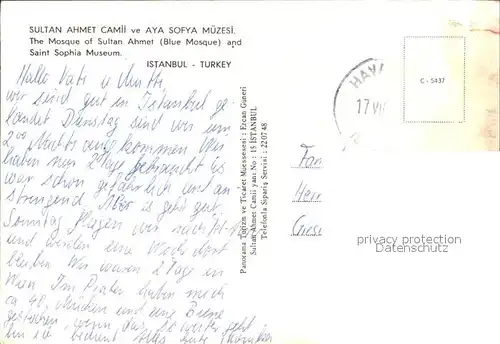 SULTAN AHMET CAMİİ ve AYA SOFYA MÜZESİ.
The Mosque of Sultan Ahmet (Blue Mosque) and
Saint Sophia Museum.
ISTANBUL - TURKEY
Hallo Vati u Mutti,
wir sind gut in Istanbul ge-
landet Dienstag sind wir um
2°° nachts angekommen Wir
haben nun 2 Tage gebraucht es
war schon gefährlich und an
strengend. Aber es geht gut.
Sonntag fliegen wir
und werden eine Woche dort
bleiben. Wir waren 2 Tage in
Wien Im Prater haben mich
ca 40 Mücken und eine Biene
gestochen, wenn das so weiter geht
bin ich bedient Alles Gute
Panorama Turizm ve Ticaret Müessesesi : Ercan Güneri
Sultan Ahmet Camii yanı No : 15 İSTANBUL
Telefonla Sipariş Servisi : 22 07 48
HAVA
17 VII
C - 5437
Fam
Herr
privacy protection
Datenschutz